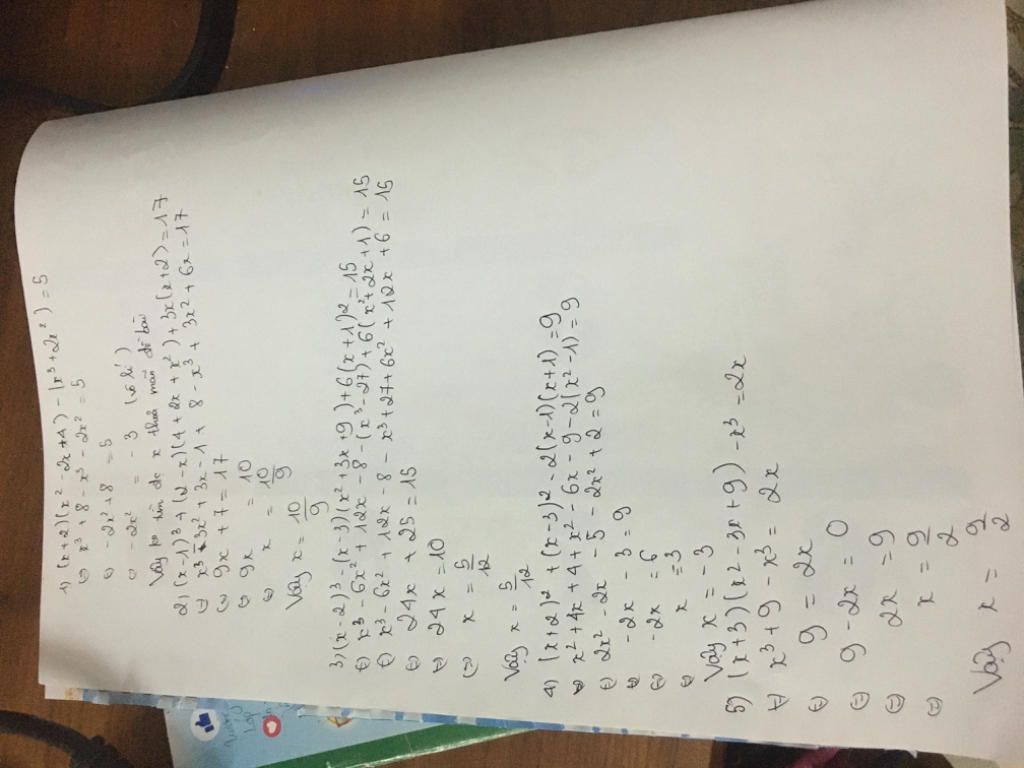 1) (x+2)(x² - 2x + 4) - (x³ + 2x²) = 5
⇔ x³ + 8 - x³ - 2x² = 5
⇔ -2x² + 8 = 5
⇔ -2x² = -3 (vô lí)
Vậy ko tìm đc x thoả mãn đề bài
2) (x-1)³ + (2-x)(4 + 2x + x²) + 3x(x+2) = 17
⇔ x³ - 3x² + 3x - 1 + 8 - x³ + 3x² + 6x = 17
⇔ 9x + 7 = 17
⇔ 9x = 10
⇔ x = 10/9
Vậy x = 10/9
3) (x-2)³ - (x-3)(x² + 3x + 9) + 6(x+1)² = 15
⇔ x³ - 6x² + 12x - 8 - (x³ - 27) + 6(x² + 2x + 1) = 15
⇔ x³ - 6x² + 12x - 8 - x³ + 27 + 6x² + 12x + 6 = 15
⇔ 24x + 25 = 15
⇔ 24x = 10
⇔ x = 5/12
Vậy x = 5/12
4) (x+2)² + (x-3)² - 2(x-1)(x+1) = 9
⇔ x² + 4x + 4 + x² - 6x - 9 - 2(x² - 1) = 9
⇔ 2x² - 2x - 5 - 2x² + 2 = 9
⇔ -2x - 3 = 9
⇔ -2x = 6
⇔ x = 3
Vậy x = -3
5) (x+3)(x² - 3x + 9) - x³ = 2x
⇔ x³ + 9 - x³ = 2x
⇔ 9 = 2x
⇔ 9 - 2x = 0
⇔ 2x = 9
⇔ x = 9/2
Vậy x = 9/2